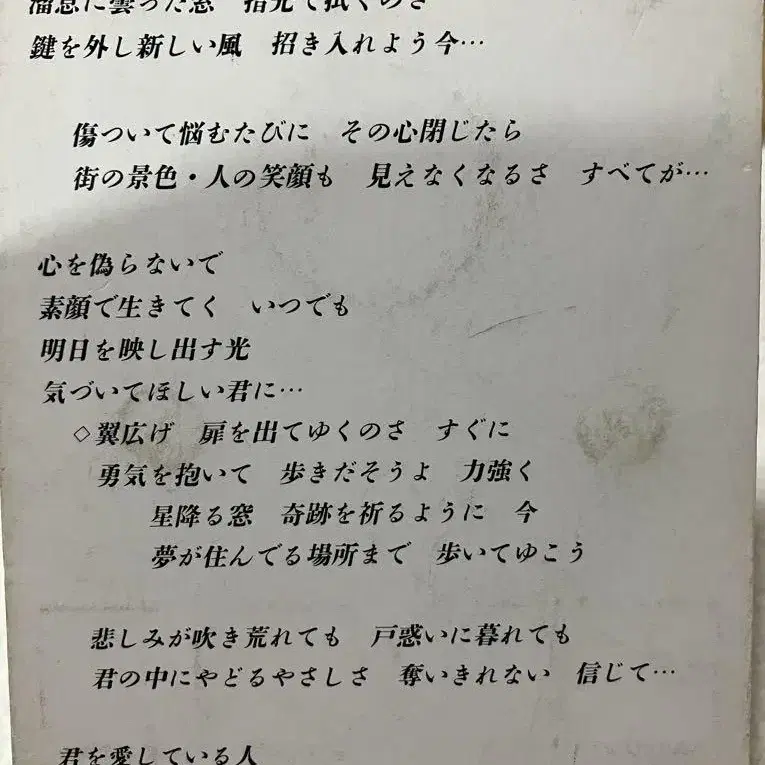 溜息に曇った窓　指先で拭くのさ
鍵を外し新しい風　招き入れよう今…
傷ついて悩むたびに　その心閉じたら
街の景色・人の笑顔も　見えなくなるさ　すべてが…
心を偽らないで
素顔で生きてく　いつでも
明日を映し出す光
気づいてほしい君に…
◇翼広げ　扉を出てゆくのさ　すぐに
勇気を抱いて　歩きだそうよ　力強く
星降る窓　奇跡を祈るように　今
夢が住んでる場所まで　歩いてゆこう
悲しみが吹き荒れても　戸惑いに暮れても
君の中にやどるやさしさ　奪いきれない　信じて…
君を愛している人